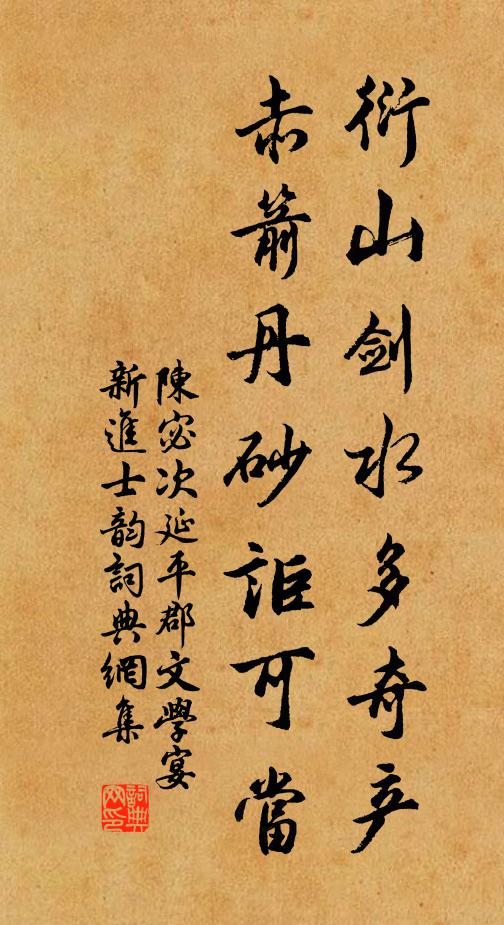 衍山剑水多奇产
赤箭丹砂詎可當
陳宓次延平郡文學宴
新進士韵詞典網集
詞典网印